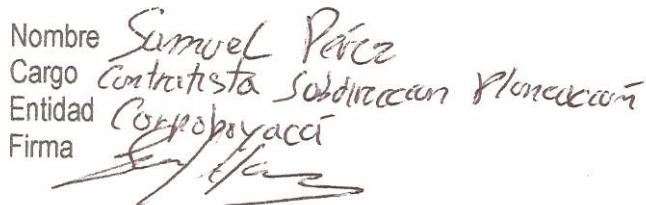 Nombre Samuel Pérez
Cargo Contratista Subdireccion Planeación
Entidad Corpoboyacá
Firma